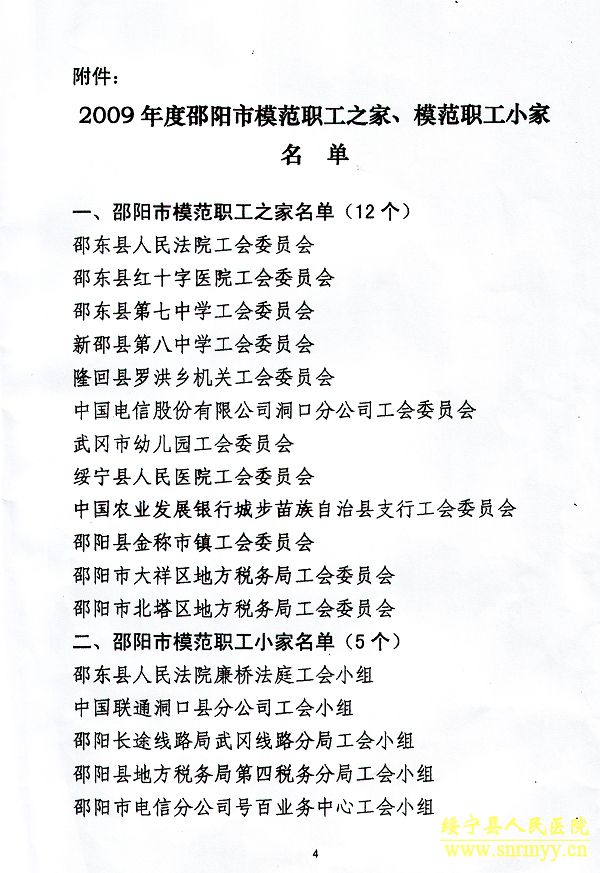 附件：
2009年度邵阳市模范职工之家、模范职工小家
名 单
一、邵阳市模范职工之家名单（12个）
邵东县人民法院工会委员会
邵东县红十字医院工会委员会
邵东县第七中学工会委员会
新邵县第八中学工会委员会
隆回县罗洪乡机关工会委员会
中国电信股份有限公司洞口分公司工会委员会
武冈市幼儿园工会委员会
绥宁县人民医院工会委员会
中国农业发展银行城步苗族自治县支行工会委员会
邵阳县金称市镇工会委员会
邵阳市大祥区地方税务局工会委员会
邵阳市北塔区地方税务局工会委员会
二、邵阳市模范职工小家名单（5个）
邵东县人民法院廉桥法庭工会小组
中国联通洞口县分公司工会小组
邵阳长途线路局武冈线路分局工会小组
邵阳县地方税务局第四税务分局工会小组
邵阳市电信分公司号百业务中心工会小组
绥宁县人民医院
www.snrmyy.cn
4